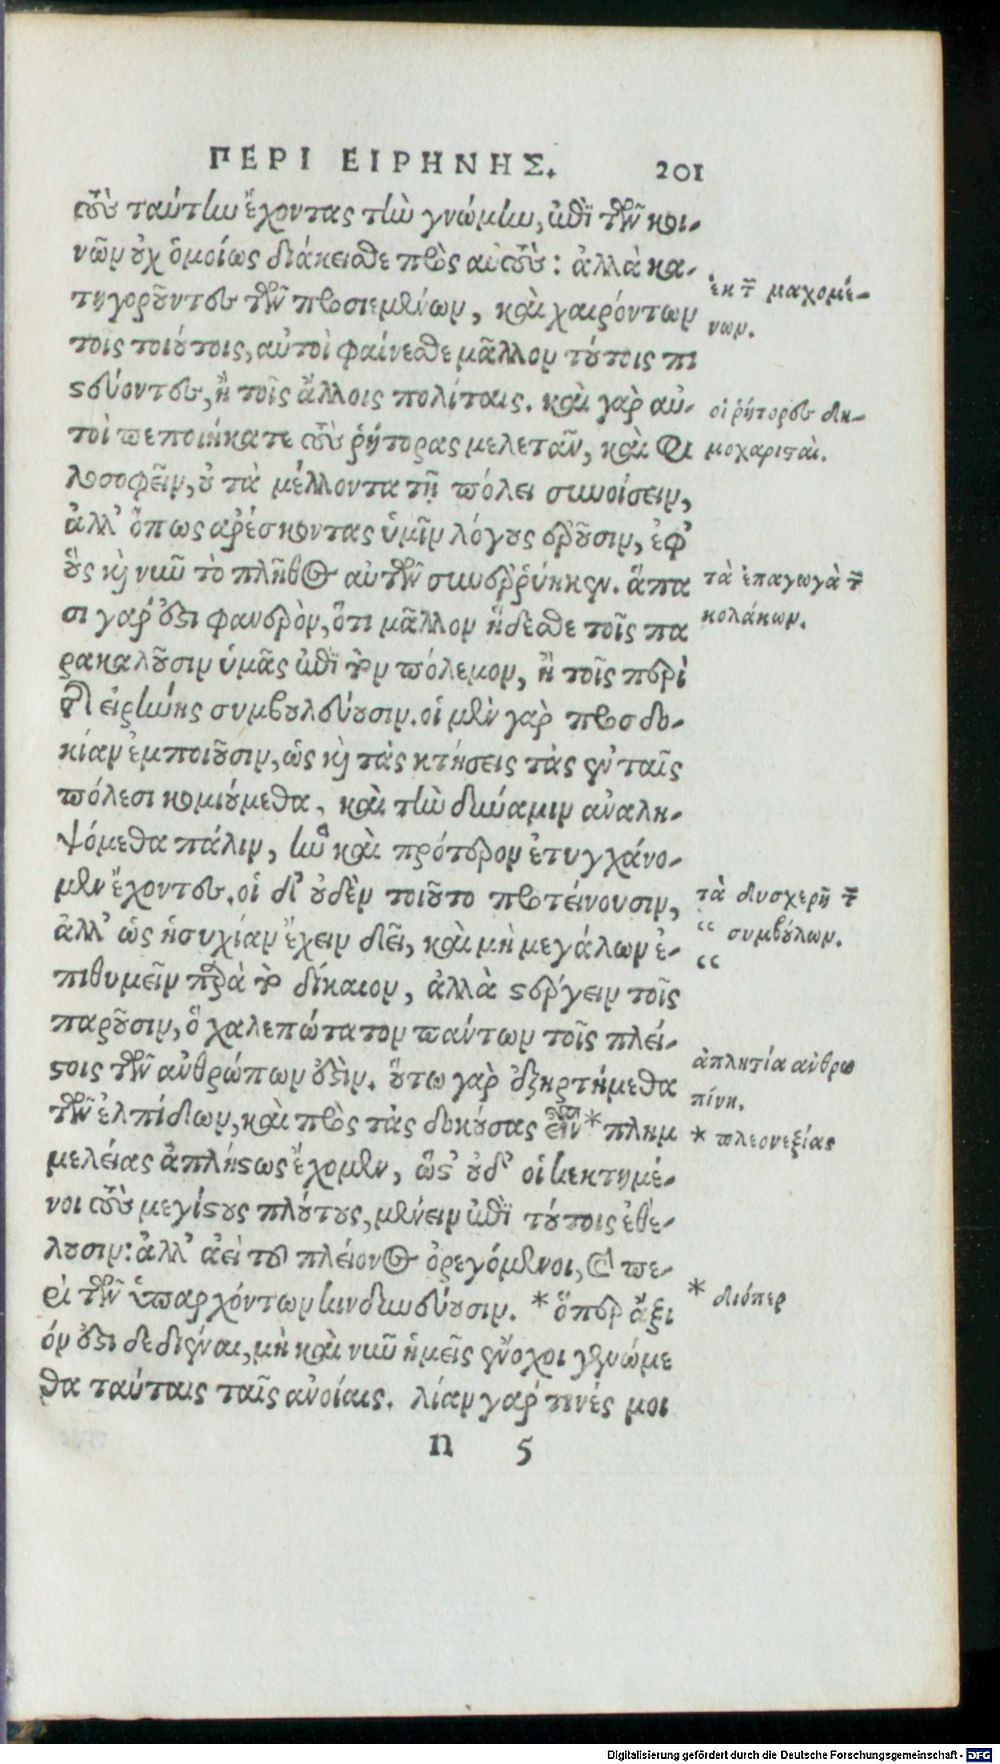 ΠΕΡΙ ΕΙΡΗΝΗΣ. 201
τοὺς ταύτην ἔχοντας τὴν γνώμην, ἐπὶ τῶν κοι-
νῶν οὐχ ὁμοίως διάκεισθε πρὸς αὐτούς: ἀλλὰ κα-
τηγοροῦντες τῶν προσιεμένων, καὶ χαιρόντων
τοῖς τοιούτοις, αὐτοὶ φαίνεσθε μᾶλλον τούτοις πι
στεύοντες, ἢ τοῖς ἄλλοις πολίταις. καὶ γὰρ αὐ-
τοὶ πεποιήκατε τοὺς ῥήτορας μελετᾶν, καὶ φι
λοσοφεῖν, οὐ τὰ μέλλοντα τῇ πόλει συνοίσειν,
ἀλλ' ὅπως ἀρέσκοντας ὑμῖν λόγους ἐροῦσιν, ἐφ'
οὓς καὶ νῦν τὸ πλῆθος αὐτῶν συνερρύηκεν. ἅπα
σι γάρ ἐστι φανερὸν, ὅτι μᾶλλον ἥδεσθε τοῖς πα
ρακαλοῦσιν ὑμᾶς ἐπὶ τὸν πόλεμον, ἢ τοῖς περὶ
τῆς εἰρήνης συμβουλεύουσιν. οἱ μὲν γὰρ προσδο-
κίαν ἐμποιοῦσιν, ὡς καὶ τὰς κτήσεις τὰς ἐν ταῖς
πόλεσι κομιούμεθα, καὶ τὴν δύναμιν ἀναλη-
ψόμεθα πάλιν, ἣν καὶ πρότερον ἐτυγχάνο-
μεν ἔχοντες. οἱ δ' οὐδὲν τοιοῦτο προτείνουσιν,
ἀλλ' ὡς ἡσυχίαν ἔχειν δεῖ, καὶ μὴ μεγάλων ἐ-
πιθυμεῖν παρὰ τὸ δίκαιον, ἀλλὰ στέργειν τοῖς
παροῦσιν, ὃ χαλεπώτατον πάντων τοῖς πλεί-
στοις τῶν ἀνθρώπων ἐστίν. οὕτω γὰρ ἐξηρτήμεθα
τῶν ἐλπίδων, καὶ πρὸς τὰς δοκούσας εἶναι * πλημ
μελείας ἀπλήστως ἔχομεν, ὥστ' οὐδ' οἱ κεκτημέ-
νοι τοὺς μεγίστους πλούτους, μένειν ἐπὶ τούτοις ἐθέ-
λουσιν: ἀλλ' ἀεὶ τοῦ πλείονος ὀρεγόμενοι, καὶ πε-
ρὶ τῶν ὑπαρχόντων κινδυνεύουσιν. * ὅπερ ἄξι
όν ἐστι δεδιέναι, μὴ καὶ νῦν ἡμεῖς ἔνοχοι γενώμε
θα ταύταις ταῖς ἀνοίαις. λίαν γάρ τινές μοι
n 5
ἐκ τῶν μαχομέ-
νων.
οἱ ῥήτορες δη-
μοχαρισταί.
τὰ ἐπαγωγὰ τῶν
κολάκων.
τὰ δυσχερῆ τῶν
“ συμβούλων.
“
ἀπληστία ἀνθρω
πίνη.
* πλεονεξίας
* διόπερ
Digitalisierung gefördert durch die Deutsche Forschungsgemeinschaft - DFG